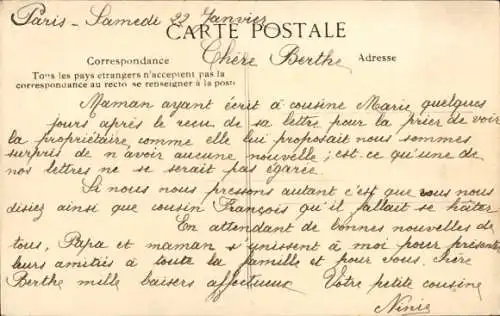 Paris - Samedi 22 Janvier
CARTE POSTALE
Correspondance
Chère Berthe
Adresse
Tous les pays étrangers n'acceptent pas la
correspondance au recto se renseigner à la poste
Maman ayant écrit à cousine Marie quelques
jours après le reçu de sa lettre pour la prier de voir
la propriétaire comme elle lui proposait nous sommes
surpris de n'avoir aucune nouvelle ; est-ce qu'une de
nos lettres ne se serait pas égarée
Si nous nous pressons autant c'est que vous nous
disiez ainsi que cousin François qu'il fallait se hâter
En attendant de bonnes nouvelles de
tous, Papa et maman s'unissent à moi pour présenter
leurs amitiés à toute la famille et pour vous chère
Berthe mille baisers affectueux Votre petite cousine
Ninie